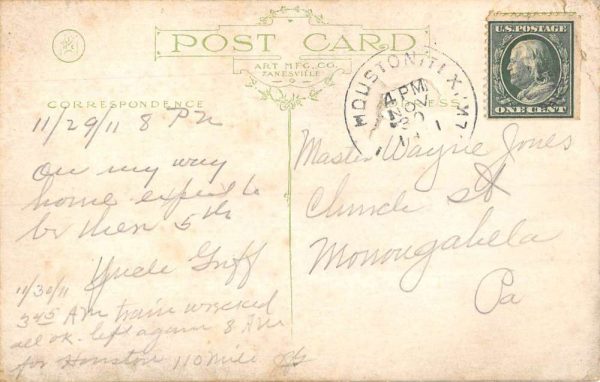 POST CARD
ART MFG. CO.
ZANESVILLE
CORRESPONDENCE
ESS
U.S. POSTAGE
ONE CENT
HOUSTON, TEX.
4 PM
NOV
30
11/29/11 8 PM
On my way
home expect to
be there 5th
Uncle Griff
11/30/11
345 AM train wrecked
all ok. left again 8 AM
for Houston 110 mile
Master Wayne Jones
Church St
Monongahela
Pa